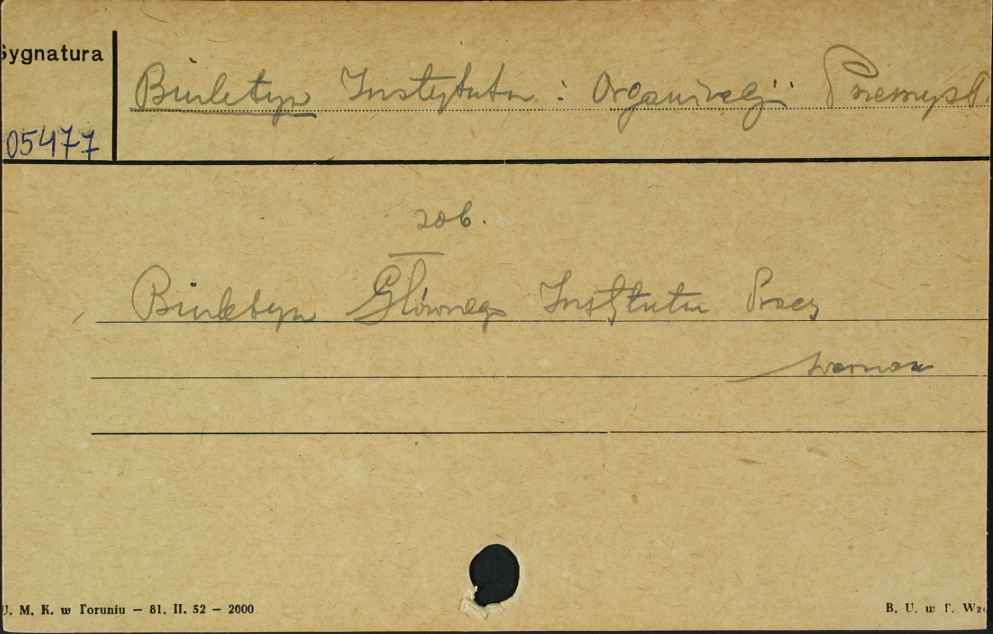 Sygnatura
Biuletyn Instytutu : Organizacji Przemysł.
05477
zob.
Biuletyn Głównego Instytutu Przetwórczości
U. M. K. w Toruniu — 81. II. 52 — 2000
B. U. w T. Wz